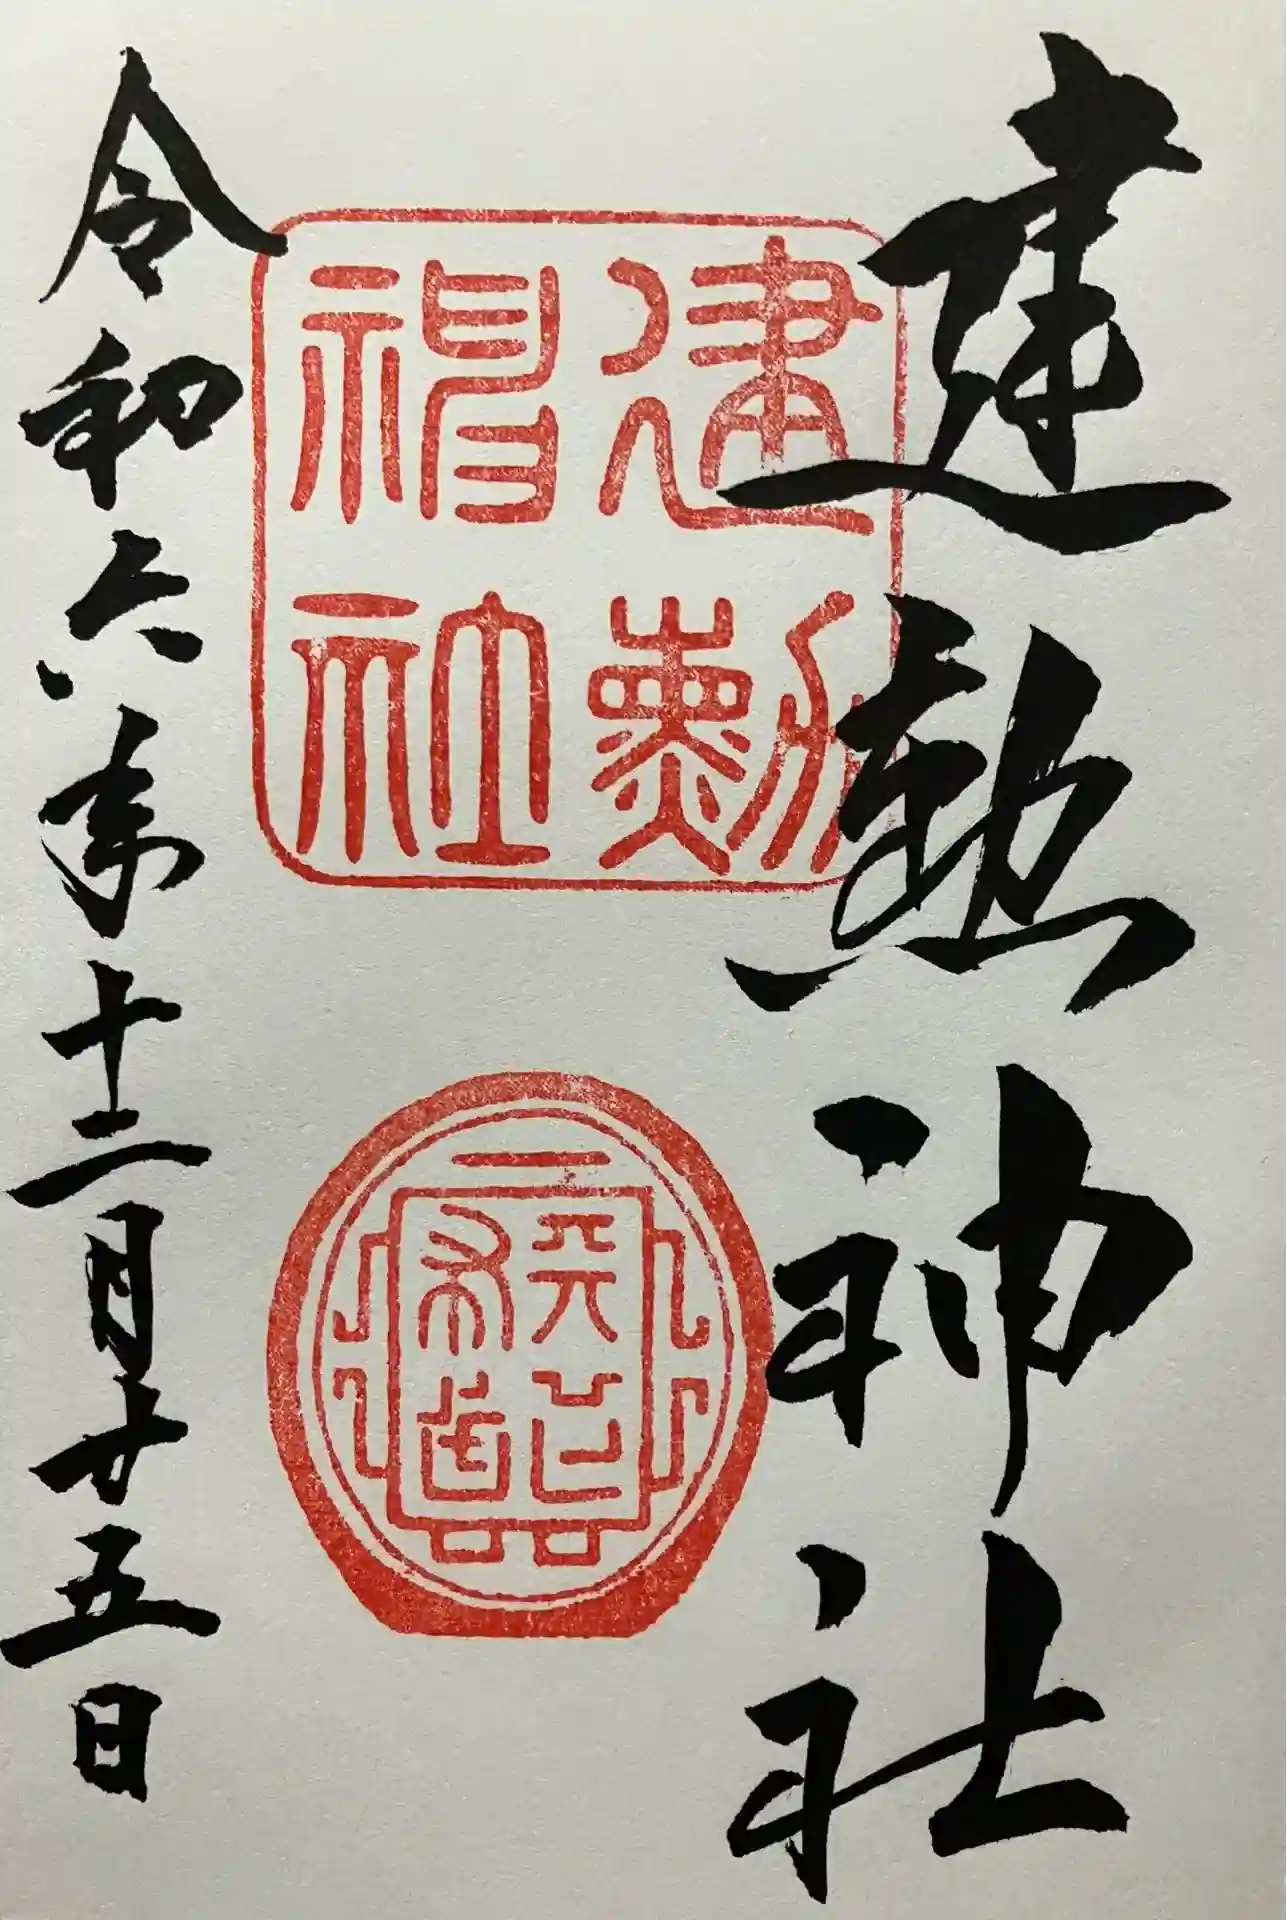 建勲神社
建勳神社
天下布武
令和六年十二月廿五日